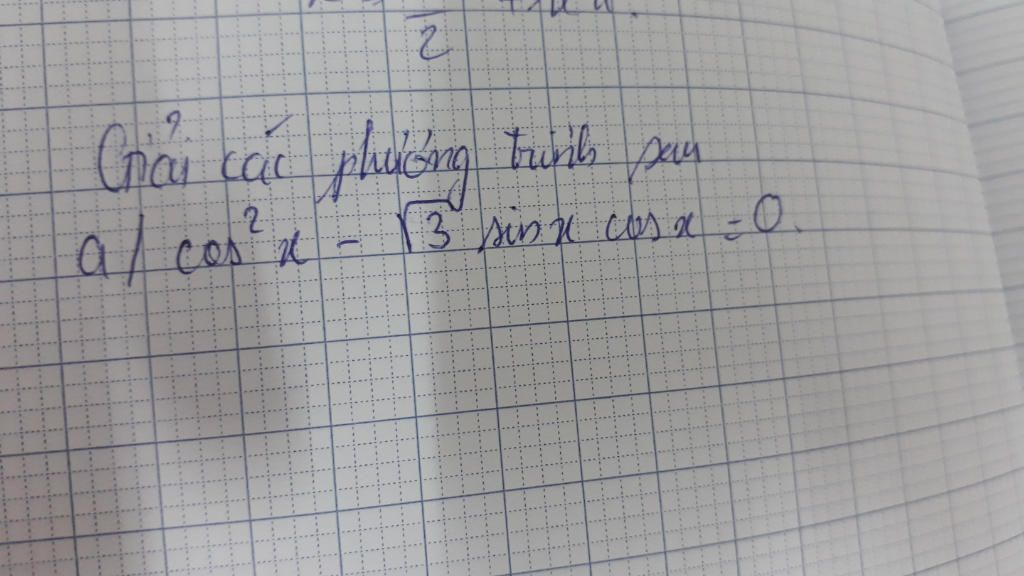 2
Giải các phương trình sau
a/ cos² x - √3 sin x cos x = 0.